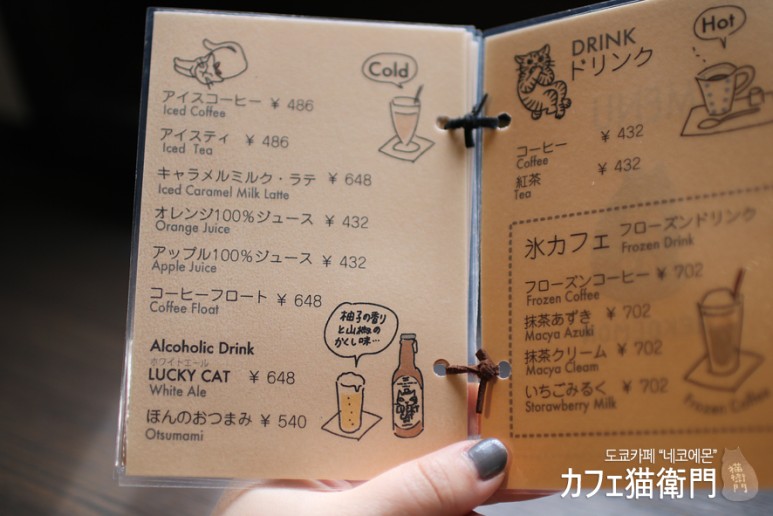 Cold
アイスコーヒー ¥ 486
Iced Coffee
アイスティ ¥ 486
Iced Tea
キャラメルミルク・ラテ ¥ 648
Iced Caramel Milk Latte
オレンジ100%ジュース ¥ 432
Orange Juice
アップル100%ジュース ¥ 432
Apple Juice
コーヒーフロート ¥ 648
Coffee Float
柚子の香り
と山椒の
かくし味…
Alcoholic Drink
ホワイトエール
LUCKY CAT ¥ 648
White Ale
ほんのおつまみ ¥ 540
Otsumami
DRINK
ドリンク
Hot
コーヒー ¥ 432
Coffee
紅茶 ¥ 432
Tea
氷カフェ フローズンドリンク
Frozen Drink
フローズンコーヒー ¥ 702
Frozen Coffee
抹茶あずき ¥ 702
Macya Azuki
抹茶クリーム ¥ 702
Macya Cleam
いちごみるく ¥ 702
Storawberry Milk
Frozen Coffee
도쿄카페 "네코에몬"
カフェ猫衛門
猫衛門